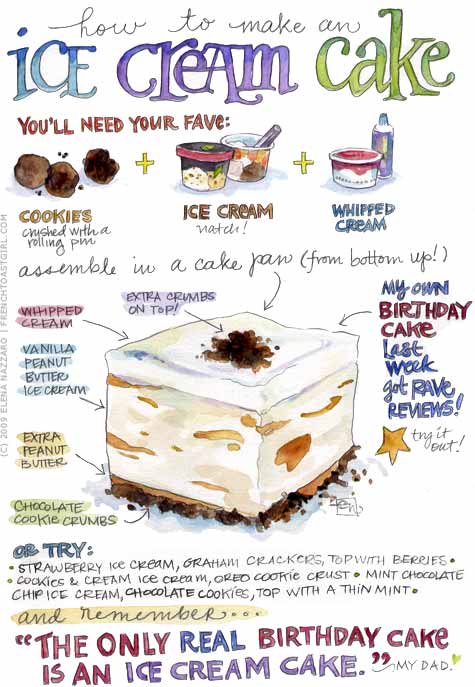 how to make an
ICE CREAM CAKE
YOU'LL NEED YOUR FAVE:
+ +
COOKIES
crushed with a
rolling pin
ICE CREAM
natch!
WHIPPED
CREAM
assemble in a cake pan (from bottom up!)
WHIPPED
CREAM
EXTRA CRUMBS
ON TOP!
VANILLA
PEANUT
BUTTER
ICE CREAM
EXTRA
PEANUT
BUTTER
CHOCOLATE
COOKIE CRUMBS
MY OWN
BIRTHDAY
CAKE
Last
week
got RAVE
REVIEWS!
try it
out!
(C) 2009 ELENA NAZZARO | FRENCHTOASTGIRL.COM
OR TRY:
• STRAWBERRY ICE CREAM, GRAHAM CRACKERS, TOP WITH BERRIES •
• COOKIES & CREAM ICE CREAM, OREO COOKIE CRUST • MINT CHOCOLATE
CHIP ICE CREAM, CHOCOLATE COOKIES, TOP WITH A THIN MINT •
and remember...
"THE ONLY REAL BIRTHDAY CAKE
IS AN ICE CREAM CAKE." ~MY DAD.